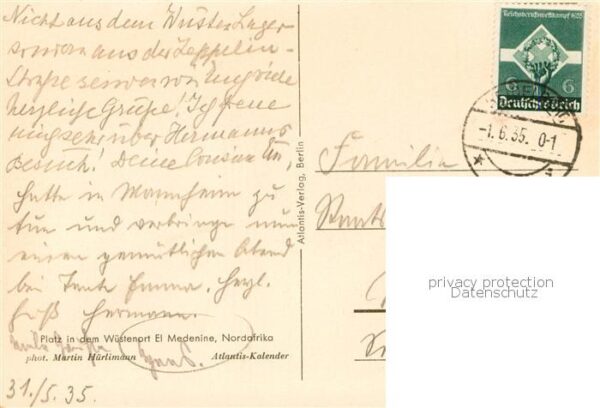 Nicht aus dem Wüsten Lager
sondern aus der Zeppelin-
Straße senden wir
herzliche Grüße! Ich freue
mich sehr über Hermanns
Besuch! Deine Cousine
hatte in Mannheim zu
tun und verbringe nun
einen gemütlichen Abend
bei Tante Emma. Herzl.
Gruß Hermann.
Platz in dem Wüstenort El Medenine, Nordafrika
phot. Martin Hürlimann Atlantis-Kalender
31./5. 35.
Atlantis-Verlag, Berlin
Reichsberufswettkampf 1935
6 6
Deutsches Reich
-1.6.35. 0-1
Familie
privacy protection
Datenschutz